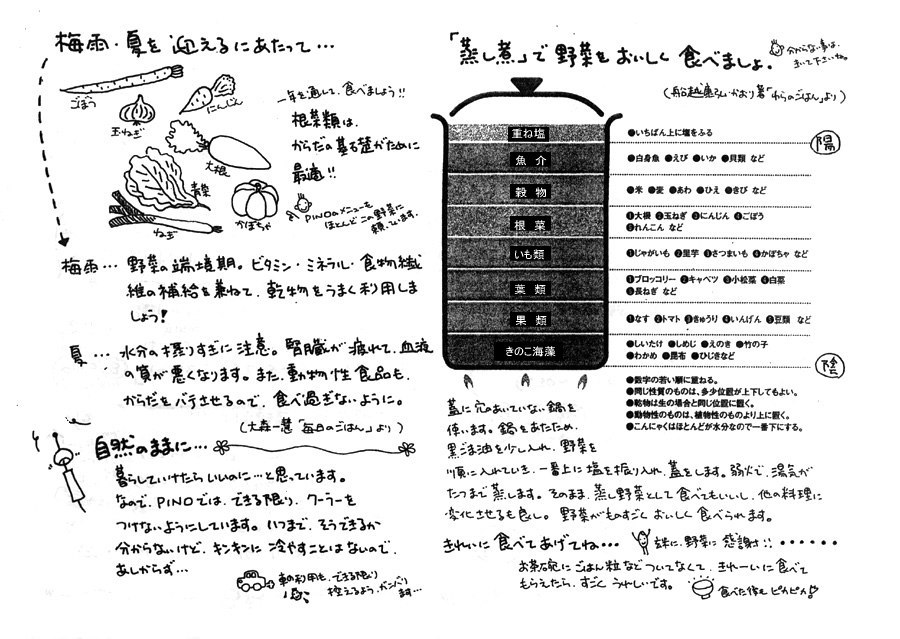 梅雨・夏を迎えるにあたって…
ごぼう
にんじん
玉ねぎ
大根
青菜
ねぎ
かぼちゃ
一年を通して、食べましょう!!
根菜類は、
からだの基礎がために
最適!!
PINOのメニューも
ほとんどこの野菜に
頼ってます。
梅雨… 野菜の端境期。ビタミン・ミネラル・食物繊
維の補給を兼ねて、乾物をうまく利用しま
しょう!
夏… 水分の摂りすぎに注意。腎臓が疲れて、血液
の質が悪くなります。また、動物性食品も、
からだをバテさせるので、食べ過ぎないように。
(大森一慧「毎日のごはん」より)
自然のままに…
暮らしていけたらいいのに…と思っています。
なので、PINOでは、できる限り、クーラーを
つけないようにしています。いつまで、そうできるか
分からないけど、キンキンに冷やすことはないので、
あしからず…
車の利用も、できる限り
控えるよう、ガンバり
ます…
「蒸し煮」で野菜をおいしく食べましょ。
分からない事は、
きいて下さいね。
(船越康弘・かおり著「わらのごはん」より)
重ね塩
●いちばん上に塩をふる
陽
魚介
●白身魚 ●えび ●いか ●貝類 など
穀物
●米 ●麦 ●あわ ●ひえ ●きび など
根菜
❶大根 ❷玉ねぎ ❷にんじん ❹ごぼう
❺れんこん など
いも類
❶じゃがいも ❷里芋 ❸さつまいも ❹かぼちゃ など
葉類
❶ブロッコリー ❷キャベツ ❸小松菜 ❹白菜
❺長ねぎ など
果類
❶なす ❷トマト ❸きゅうり ❹いんげん ❺豆類 など
きのこ海藻
●しいたけ ●しめじ ●えのき ●竹の子
●わかめ ●昆布 ●ひじきなど
陰
●数字の若い順に重ねる。
●同じ性質のものは、多少位置が上下してもよい。
●乾物は生の場合と同じ位置に置く。
●動物性のものは、植物性のものより上に置く。
●こんにゃくはほとんどが水分なので一番下にする。
蓋に穴のあいていない鍋を
使います。鍋をあたため、
黒ごま油を少し入れ、野菜を
順に入れていき、一番上に塩を振り入れ、蓋をします。弱火で、湯気が
たつまで蒸します。そのまま、蒸し野菜として食べてもいいし、他の料理に
変化させるも良し。野菜がものすごくおいしく食べられます。
きれいに食べてあげてね…
お米に、野菜に感謝!!・・・・・・
お茶碗にごはん粒などついてなくて、きれーいに食べて
もらえたら、すごくうれしいです。
食べた後もピカピカ♪